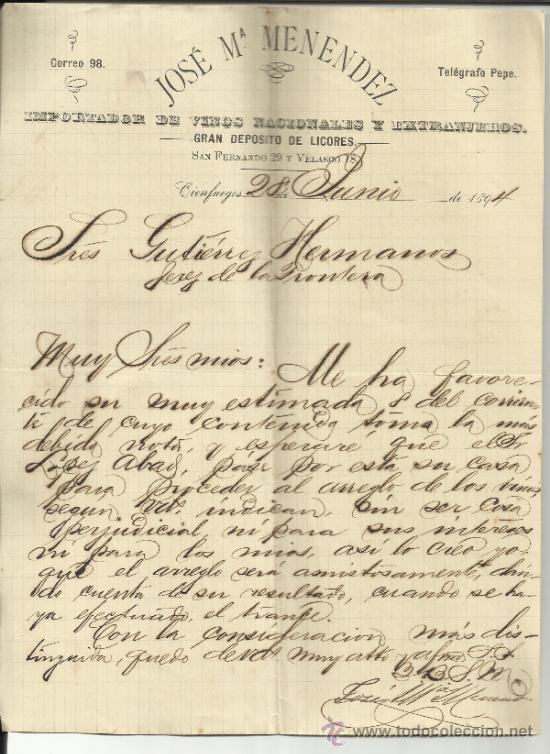 Correo 98.
JOSÉ Mª MENENDEZ
Telégrafo Pepe.
IMPORTADOR DE VINOS NACIONALES Y EXTRANJEROS.
GRAN DEPOSITO DE LICORES.
SAN FERNANDO 29 Y VELASCO
Cienfuegos 28 de Junio de 1894
Sres Gutiérrez Hermanos
Jerez de la Frontera
Muy Sres mios: Me ha favore-
cido su muy estimada 8 del corrien-
te de cuyo contenido tomo la mas
debida nota, y esperaré que el Sr
Abad, pase por esta su casa
para proceder al arreglo de los vinos
segun Vds indican, sin ser cosa
perjudicial ni para sus intereses
ni para los mios, asi lo creo yo
que el arreglo será amistosamente, dan-
do cuenta de su resultado, cuando se ha-
ya efectuado, el trance.
Con la consideracion mas dis-
tinguida, quedo de Vds muy atto y afmo S.S.
Q.B.S.M.
José Mª Menendez
todocoleccion.net